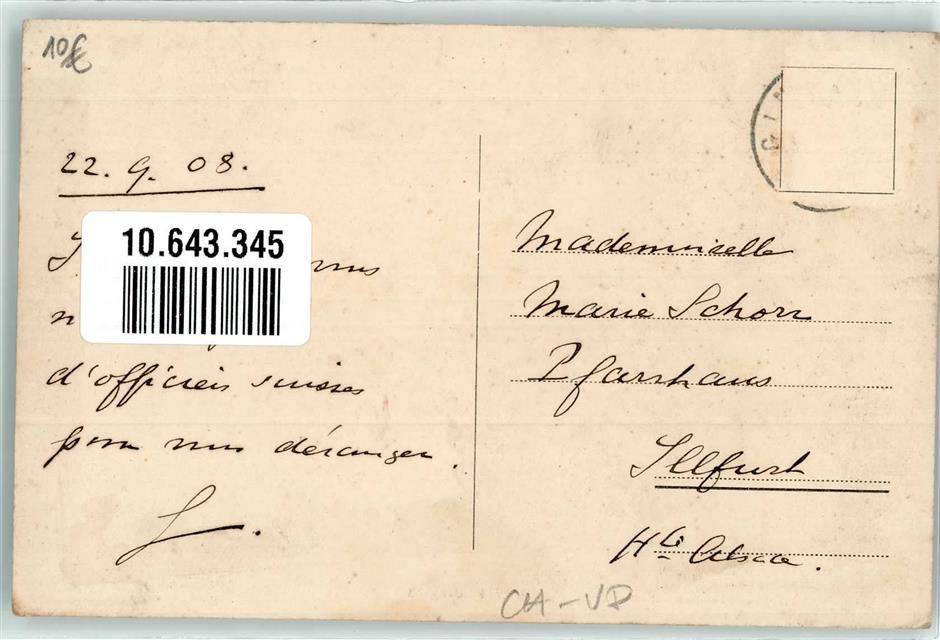 10€
22. 9. 08.
10.643.345
nous
d'officiers suisses
pour nous déranger.
L.
GIM
Mademoiselle
Marie Schorr
Pfarrhaus
Illfurt
Hte Alsace.
CH-VD